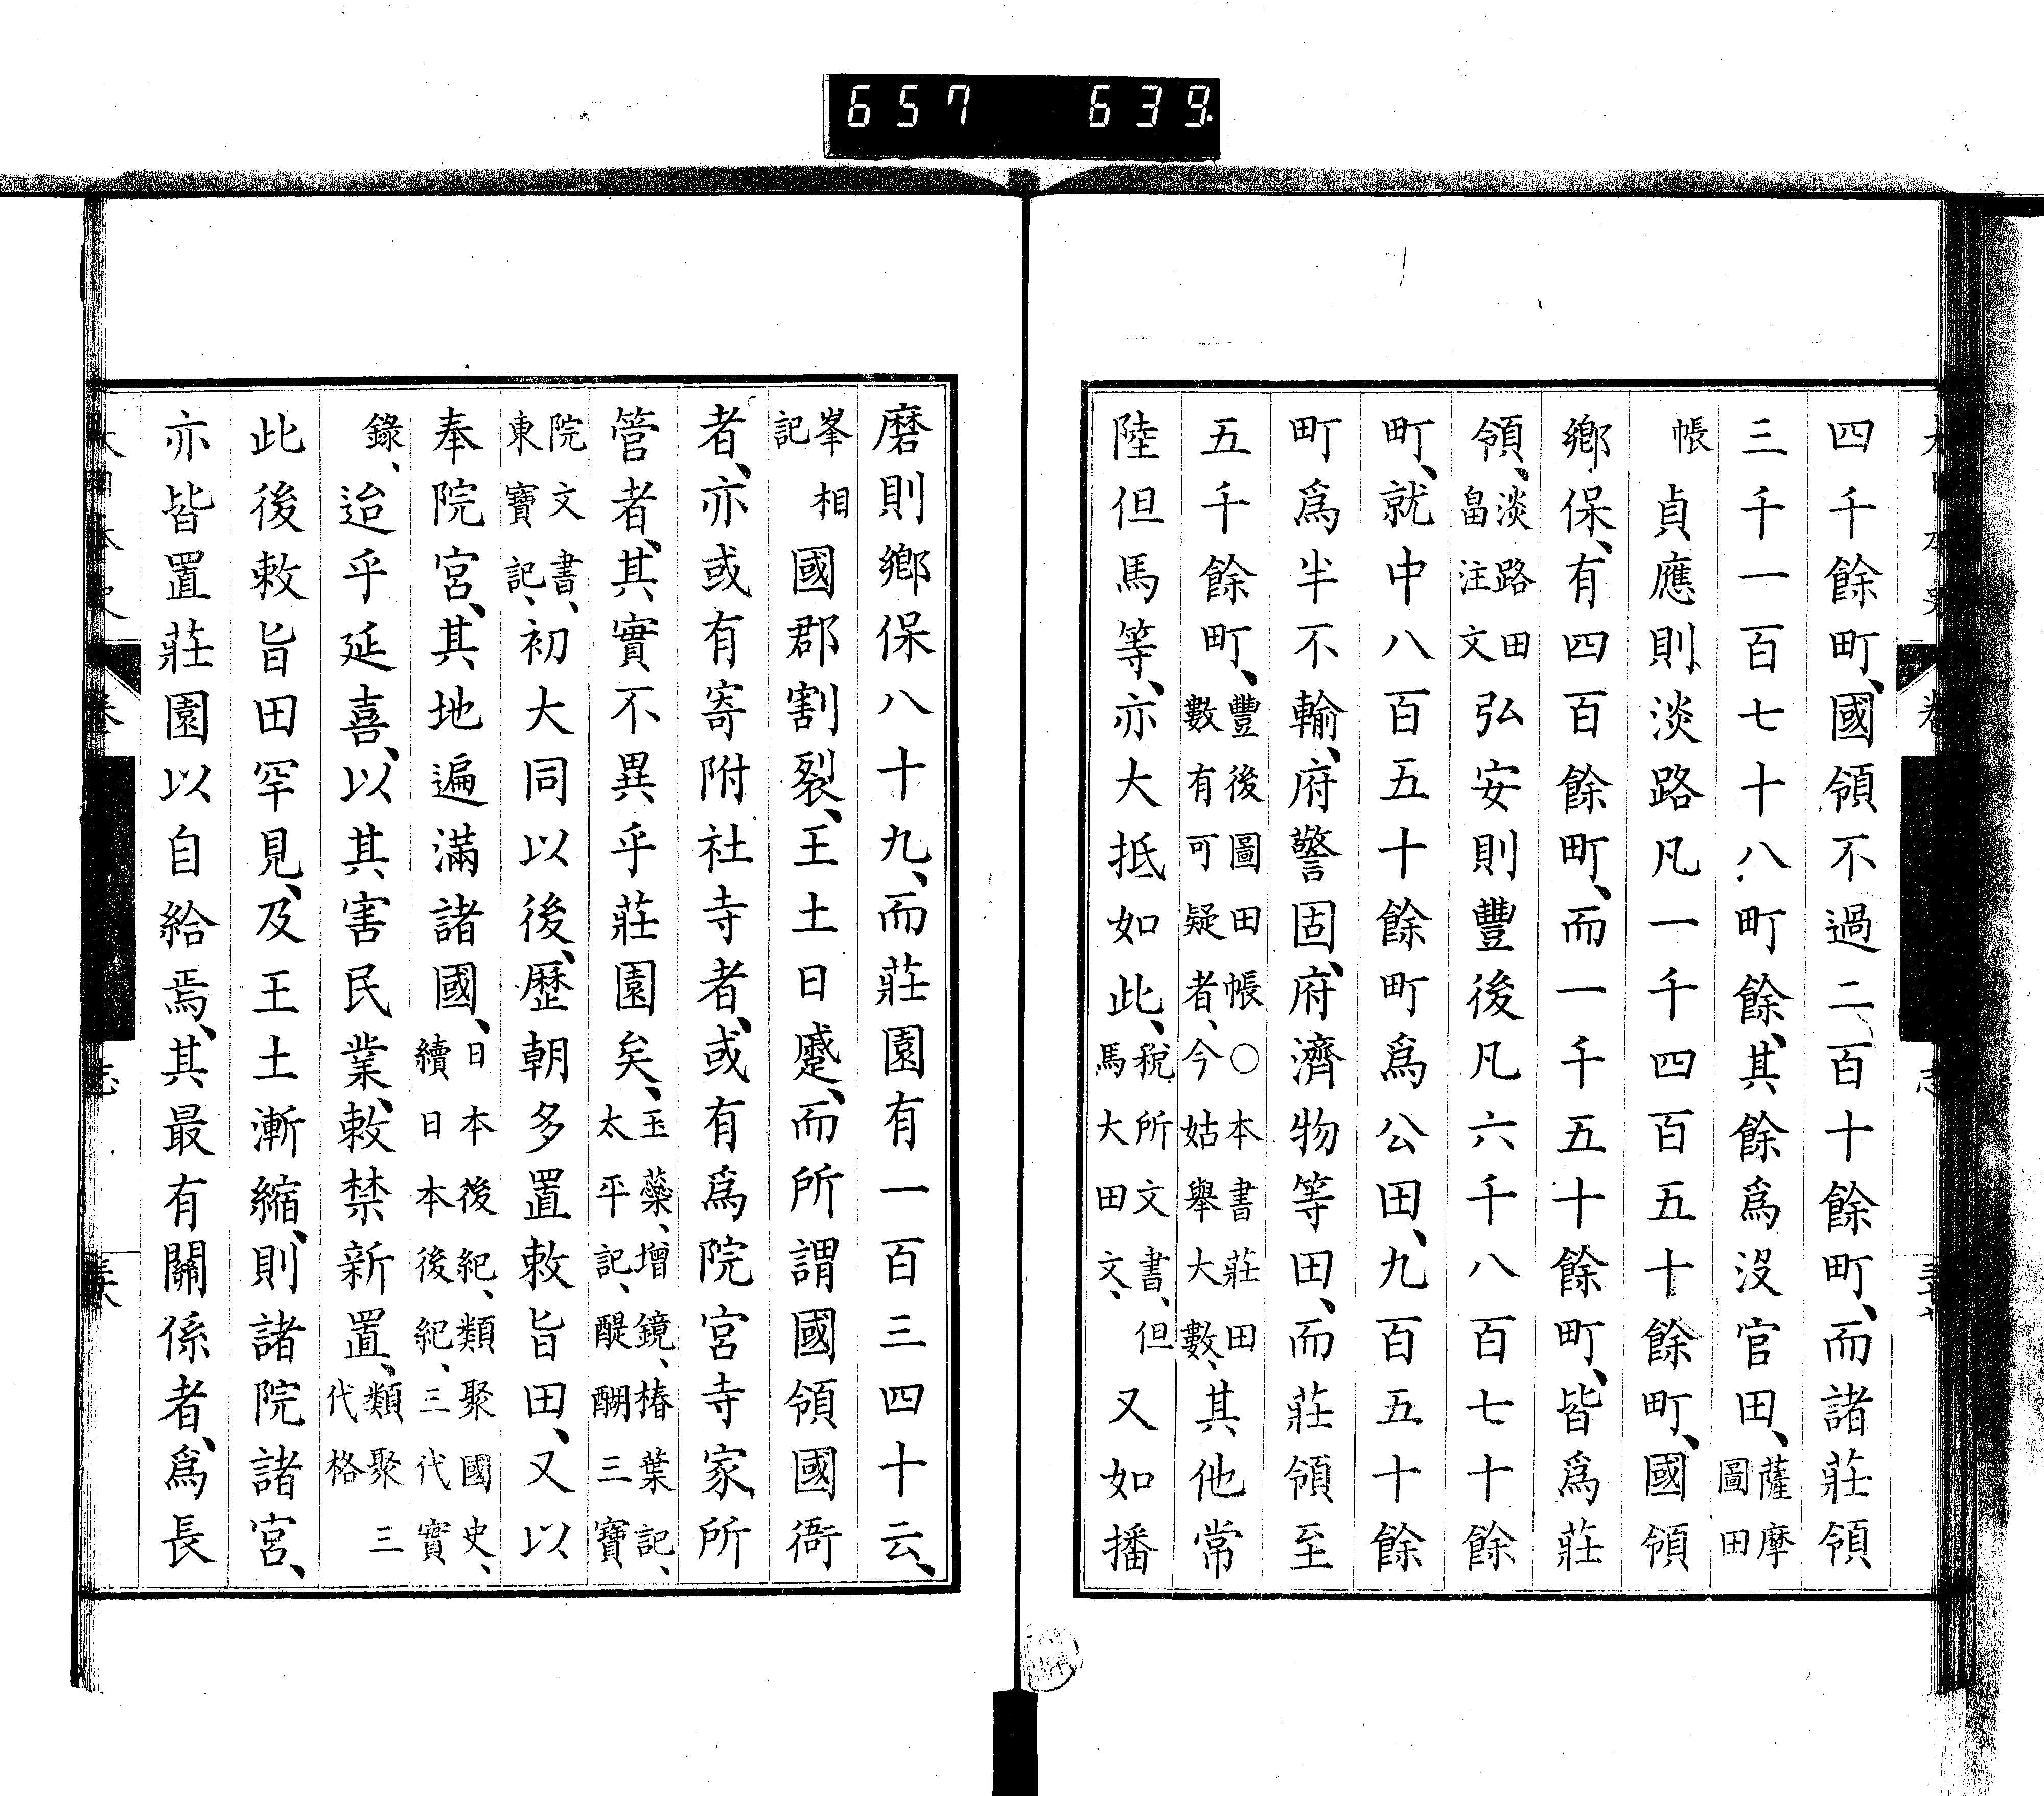 657 639.
四千餘町、國領不過二百十餘町、而諸莊領
三千一百七十八町餘、其餘爲沒官田、薩摩圖田
帳貞應則淡路凡一千四百五十餘町、國領
鄕保、有四百餘町、而一千五十餘町、皆爲莊
領、淡路田畠注文弘安則豐後凡六千八百七十餘
町、就中八百五十餘町爲公田、九百五十餘
町爲半不輸、府警固、府濟物等田、而莊領至
五千餘町、豐後圖田帳○本書莊田數有可疑者、今姑舉大數、其他常
陸但馬等、亦大抵如此、稅所文書、但馬大田文、又如播
磨則鄕保八十九、而莊園有一百三四十云、
峯相記國郡割裂、王土日蹙、而所謂國領國衙
者、亦或有寄附社寺者、或有爲院宮寺家所
管者、其實不異乎莊園矣、玉蘂、增鏡、椿葉記、太平記、醍醐三寶
院文書、東寶記、初大同以後、歷朝多置敕旨田、又以
奉院宮、其地遍滿諸國、日本後紀、類聚國史、續日本後紀、三代實
錄、迨乎延喜、以其害民業、敕禁新置、類聚三代格
此後敕旨田罕見、及王土漸縮、則諸院諸宮、
亦皆置莊園以自給焉、其最有關係者、爲長